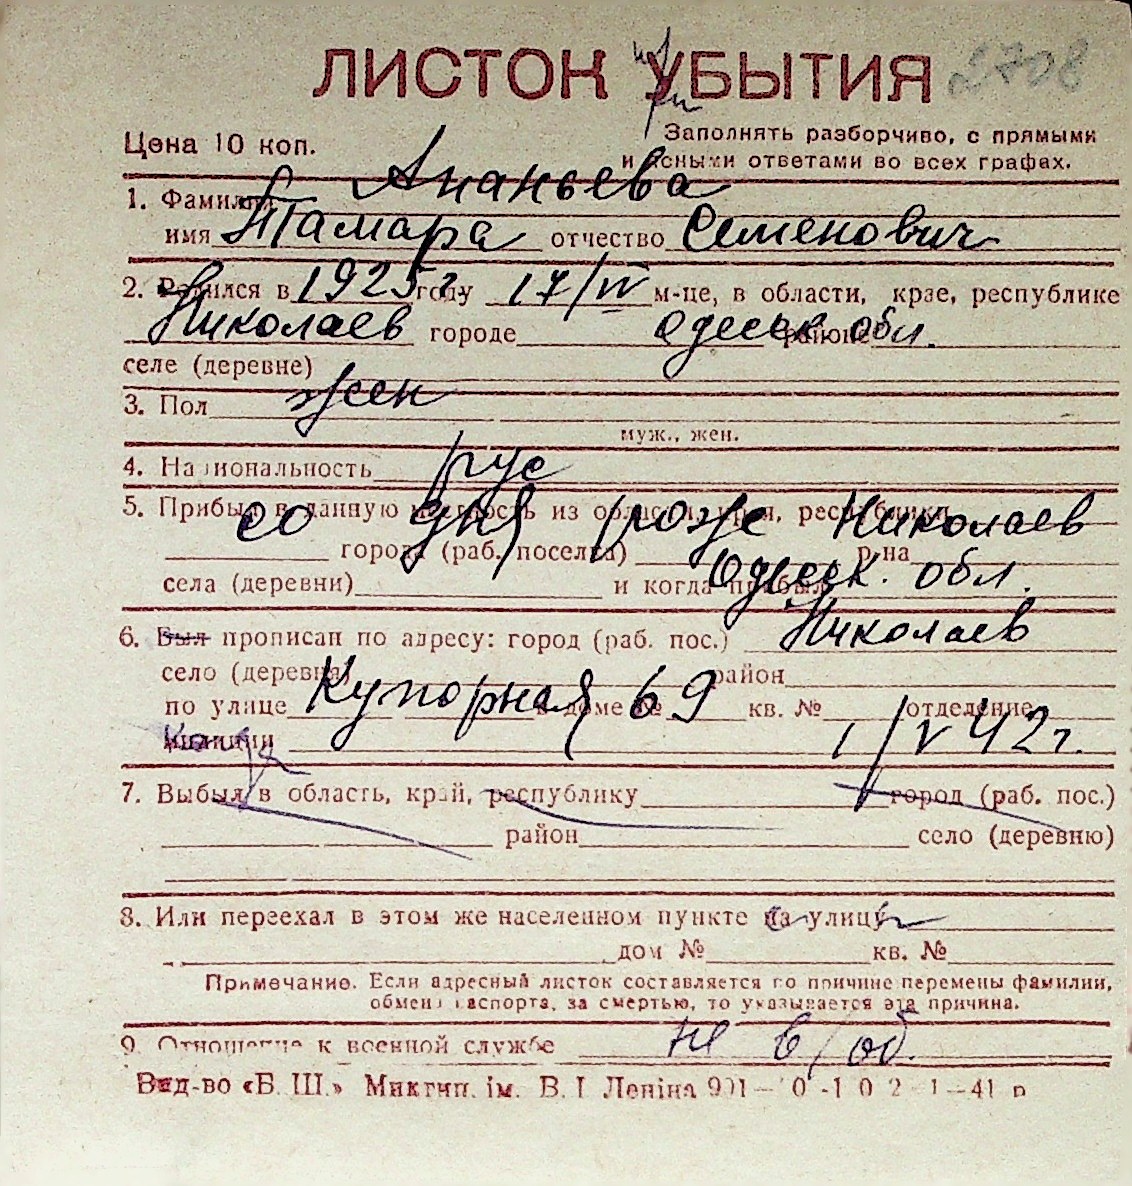 ЛИСТОК УБЫТИЯ 2708
при
Цена 10 коп.
Заполнять разборчиво, с прямыми
и ясными ответами во всех графах.
1. Фамилия Ананьева
имя Тамара отчество Семенович
2. Родился в 1925 г. году 17/IV м-це, в области, крае, республике
Николаев городе Одесск обл. районе
селе (деревне)
3. Пол жен
муж., жен.
4. Национальность рус
5. Прибыл в данную местность из области, края, республики со дня рожд Николаев
города (раб. поселка) р-на
села (деревни) и когда прибыл Одесск. обл.
6. Был прописан по адресу: город (раб. пос.) Николаев
село (деревня) район
по улице Купорная в доме № 69 кв. № отделение
милиции 1/V 42 г.
Когда
7. Выбыл в область, край, республику город (раб. пос.)
район село (деревню)
8. Или переехал в этом же населенном пункте на улицу
дом № кв. №
Примечание. Если адресный листок составляется по причине перемены фамилии,
обмена паспорта, за смертью, то указывается эта причина.
9. Отношение к военной службе не в/об.
Вид-во «Б. Ш.» Миктип. ім. В. І Леніна